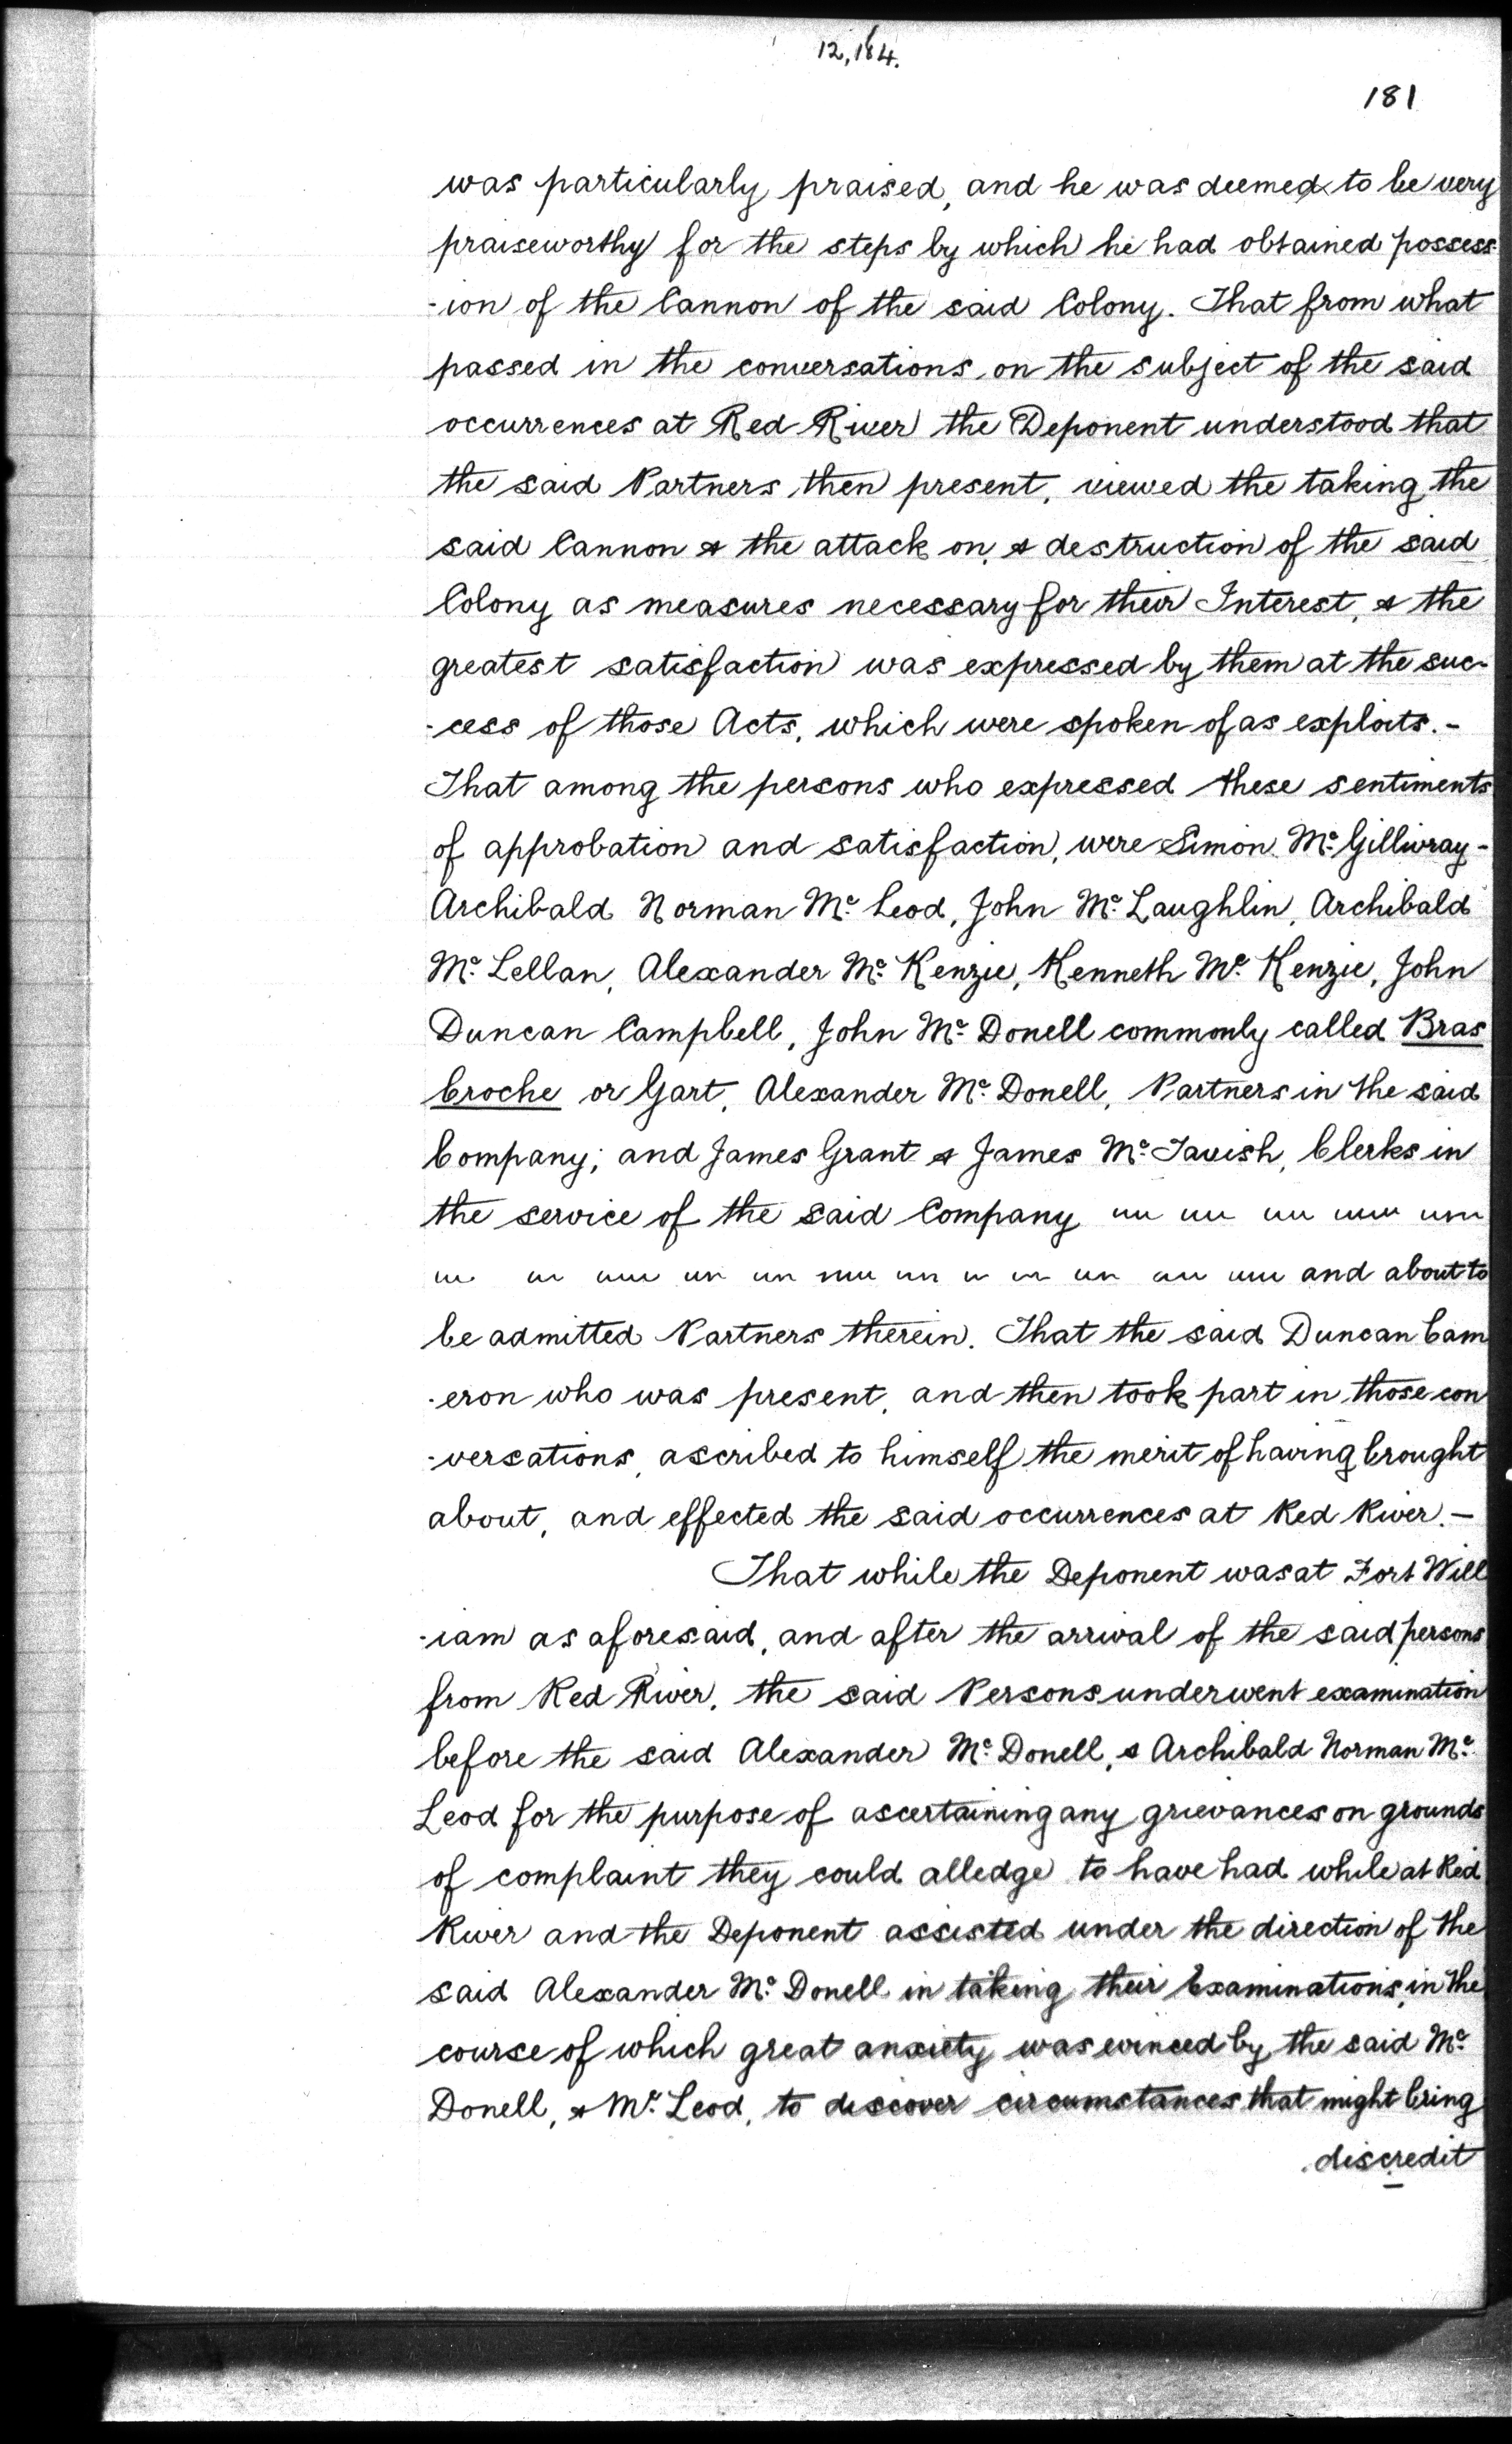 12,184.
181
was particularly praised, and he was deemed to be very
praiseworthy for the steps by which he had obtained possess-
-ion of the Cannon of the said Colony. That from what
passed in the conversations, on the subject of the said
occurrences at Red River the Deponent understood that
the said Partners then present, viewed the taking the
said Cannon & the attack on, & destruction of the said
Colony as measures necessary for their Interest, & the
greatest satisfaction was expressed by them at the suc-
-cess of those Acts, which were spoken of as exploits.-
That among the persons who expressed these sentiments
of approbation and satisfaction, were Simon Mc Gillivray -
Archibald Norman Mc Leod, John Mc Laughlin, Archibald
Mc Lellan, Alexander Mc Kenzie, Kenneth Mc Kenzie, John
Duncan Campbell, John Mc Donell commonly called Bras
Croche or Gart, Alexander Mc Donell, Partners in the said
Company; and James Grant & James Mc Tavish, Clerks in
the service of the said Company
and about to
be admitted Partners therein. That the said Duncan Cam
-eron who was present, and then took part in those con
-versations, ascribed to himself the merit of having brought
about, and effected the said occurrences at Red River.-
That while the Deponent was at Fort Will
-iam as aforesaid, and after the arrival of the said persons
from Red River, the said Persons underwent examination
before the said Alexander Mc Donell, & Archibald Norman Mc
Leod for the purpose of ascertaining any grievances on grounds
of complaint they could alledge to have had while at Red
River and the Deponent assisted under the direction of the
said Alexander Mc Donell in taking their Examinations, in the
course of which great anxiety was evinced by the said Mc
Donell, & Mc Leod, to discover circumstances that might bring
discredit